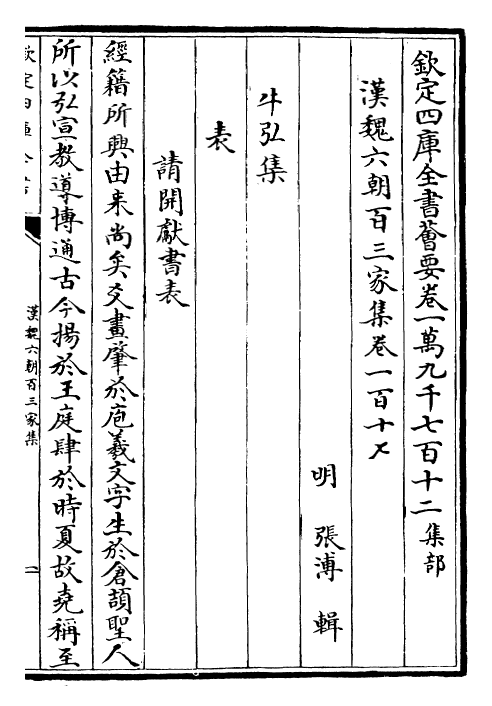 欽定四庫全書薈要卷一萬九千七百十二集部
漢魏六朝百三家集卷一百十七
明 張溥 輯
牛弘集
表
請開獻書表
經籍所興由来尚矣爻畫肇於庖羲文字生於倉頡聖人
所以弘宣教導博通古今揚於王庭肆於時夏故堯稱至
漢魏六朝百三家集